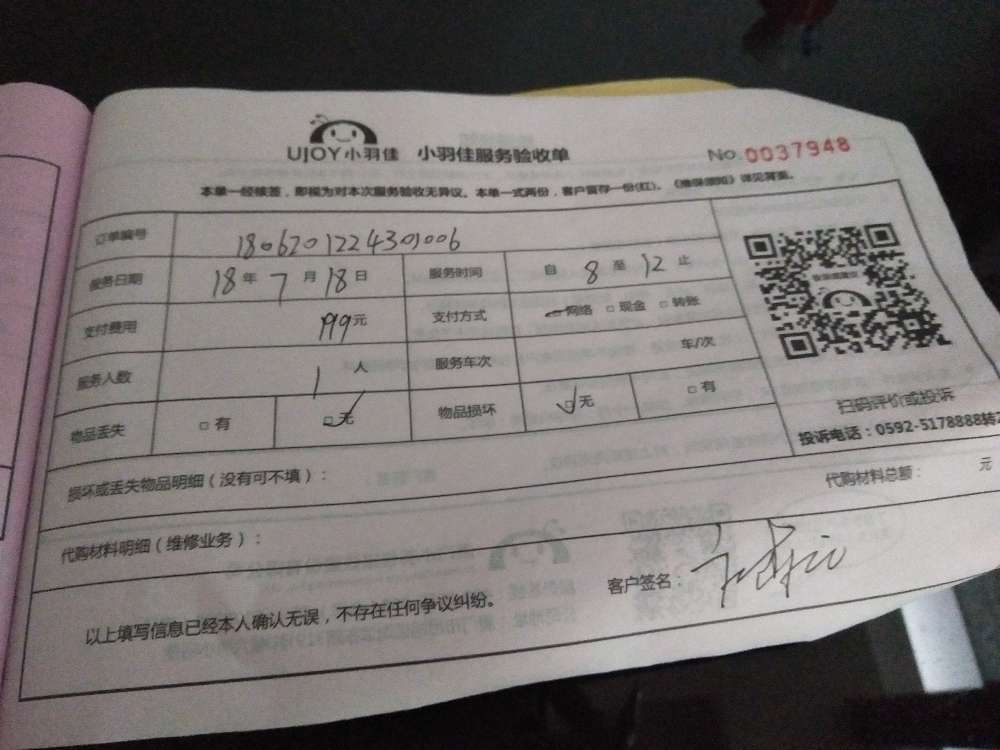 UJOY小羽佳 小羽佳服务验收单 No.0037948
本单一经核签，即视为对本次服务验收无异议。本单一式两份，客户留存一份(红)。《维保须知》详见背面。
订单编号 1806201224301006
服务日期 18年7月18日 服务时间 自8至12止
支付费用 199元 支付方式 □网络 □现金 □转账
服务人数 1人 服务车次 车/次
物品丢失 □有 □无 物品损坏 □无 □有
扫码评价或投诉
投诉电话：0592-5178888转2
损坏或丢失物品明细（没有可不填）：
代购材料明细（维修业务）： 代购材料总额： 元
以上填写信息已经本人确认无误，不存在任何争议纠纷。 客户签名：